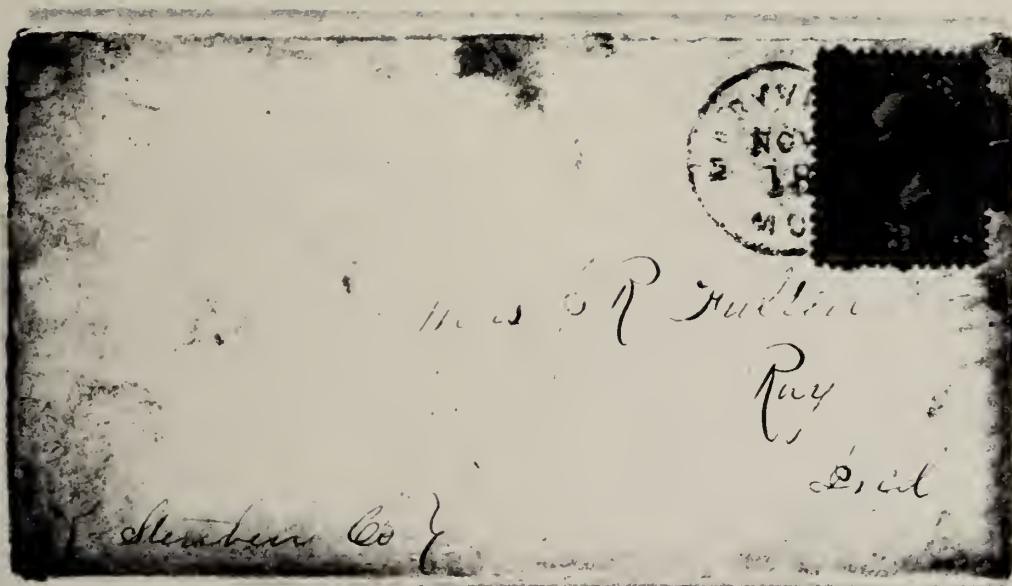 NOV
18
MO
Mrs R Fullen
Ray
Ind
Steuben Co